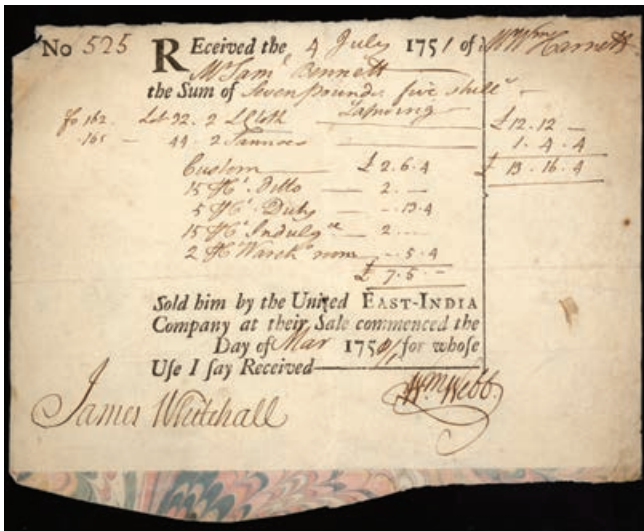 No 525 REceived the 4 July 1751 of Mr Wm Harnett
Mr Saml Bennett
the Sum of seven pounds five shills
Landing
fo 162. Lot 92. 2 LCloth £12.12 —
.165 — 44. 2 Tannoes 1.4.4
Custom — £2.6.4 £13.16.4
15 Pt Ditto — 2.—
5 Pt Duty — -.13.4
15 Pt Indulgce — 2.—
2 Pt Wareh room -.5.4
£7.5.-
Sold him by the United EAST-INDIA
Company at their Sale commenced the
Day of Mar 1750/1 for whose
Use I say Received
Wm Webb.
James Whitehall